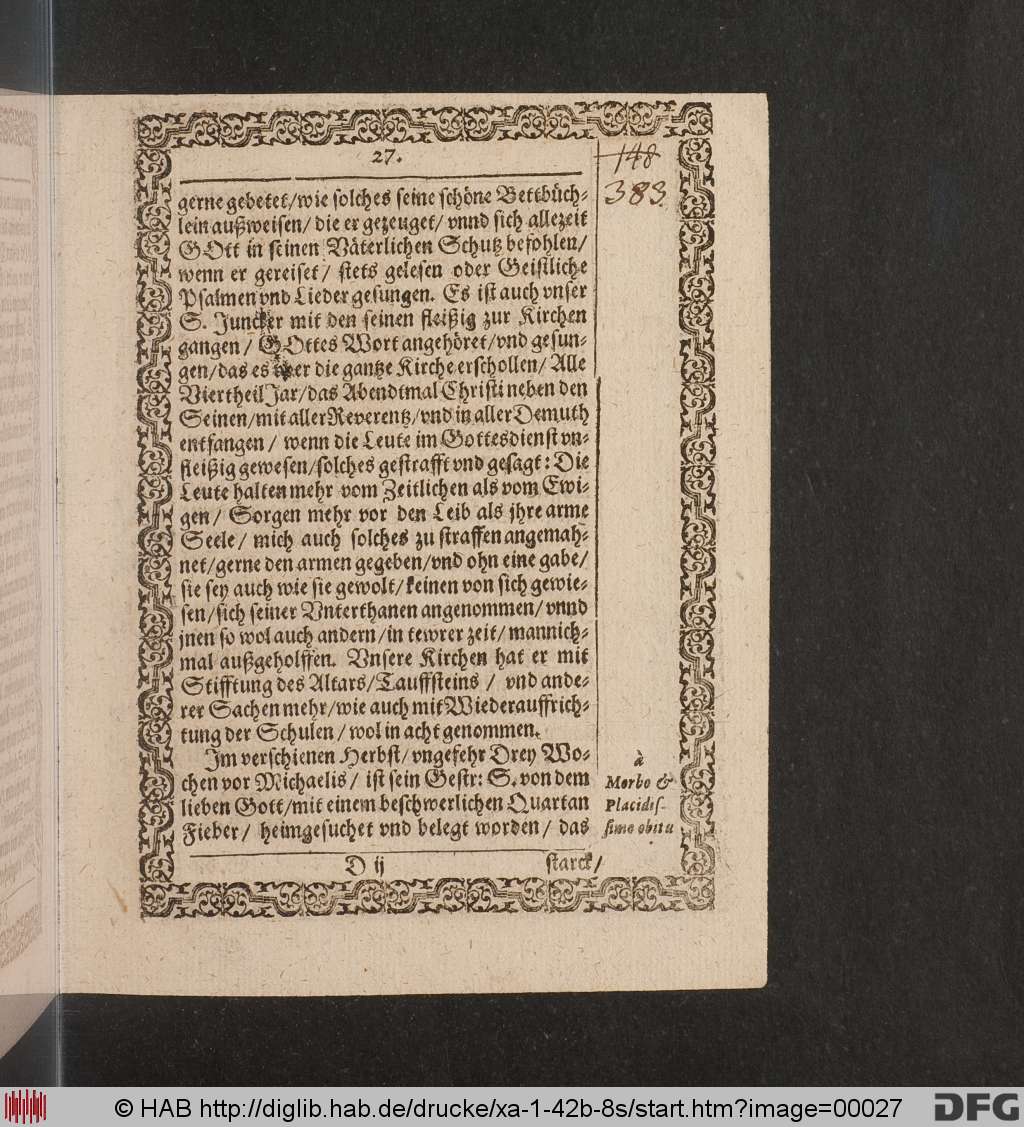 27.
148
383
gerne gebetet/wie solches seine schöne Bettbüch-
lein außweisen/ die er gezeuget/ vnnd sich allezeit
GOtt in seinen Väterlichen Schutz befohlen/
wenn er gereiset/ stets gelesen oder Geistliche
Psalmen vnd Lieder gesungen. Es ist auch vnser
S. Juncker mit den seinen fleißig zur Kirchen
gangen/ GOttes Wort angehöret/vnd gesun-
gen/das es vber die gantze Kirche erschollen/ Alle
Viertheil Jar/das Abendtmal Christi neben den
Seinen/mit aller Reverentz/vnd in aller Demuth
entfangen/ wenn die Leute im Gottesdienst vn-
fleißig gewesen/solches gestrafft vnd gesagt: Die
Leute halten mehr vom Zeitlichen als vom Ewi-
gen/ Sorgen mehr vor den Leib als jhre arme
Seele/ mich auch solches zu straffen angemah-
net/gerne den armen gegeben/vnd ohn eine gabe/
sie sey auch wie sie gewolt/keinen von sich gewie-
sen/sich seiner Vnterthanen angenommen/vnnd
jnen so wol auch andern/in tewrer zeit/mannich-
mal außgeholffen. Vnsere Kirchen hat er mit
Stifftung des Altars/Tauffsteins/ vnd ande-
rer Sachen mehr/wie auch mit Wiederauffrich-
tung der Schulen/wol in acht genommen.
Jm verschienen Herbst/vngefehr Drey Wo-
chen vor Michaelis/ ist sein Gestr: S. von dem
lieben Gott/mit einem beschwerlichen Quartan
Fieber/ heimgesuchet vnd belegt worden/ das
à
Morbo &
Placidis-
simo obitu
D ij starck/
© HAB http://diglib.hab.de/drucke/xa-1-42b-8s/start.htm?image=00027
DFG